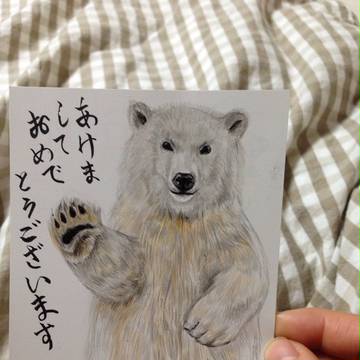 あけま
して
おめで
とうございます